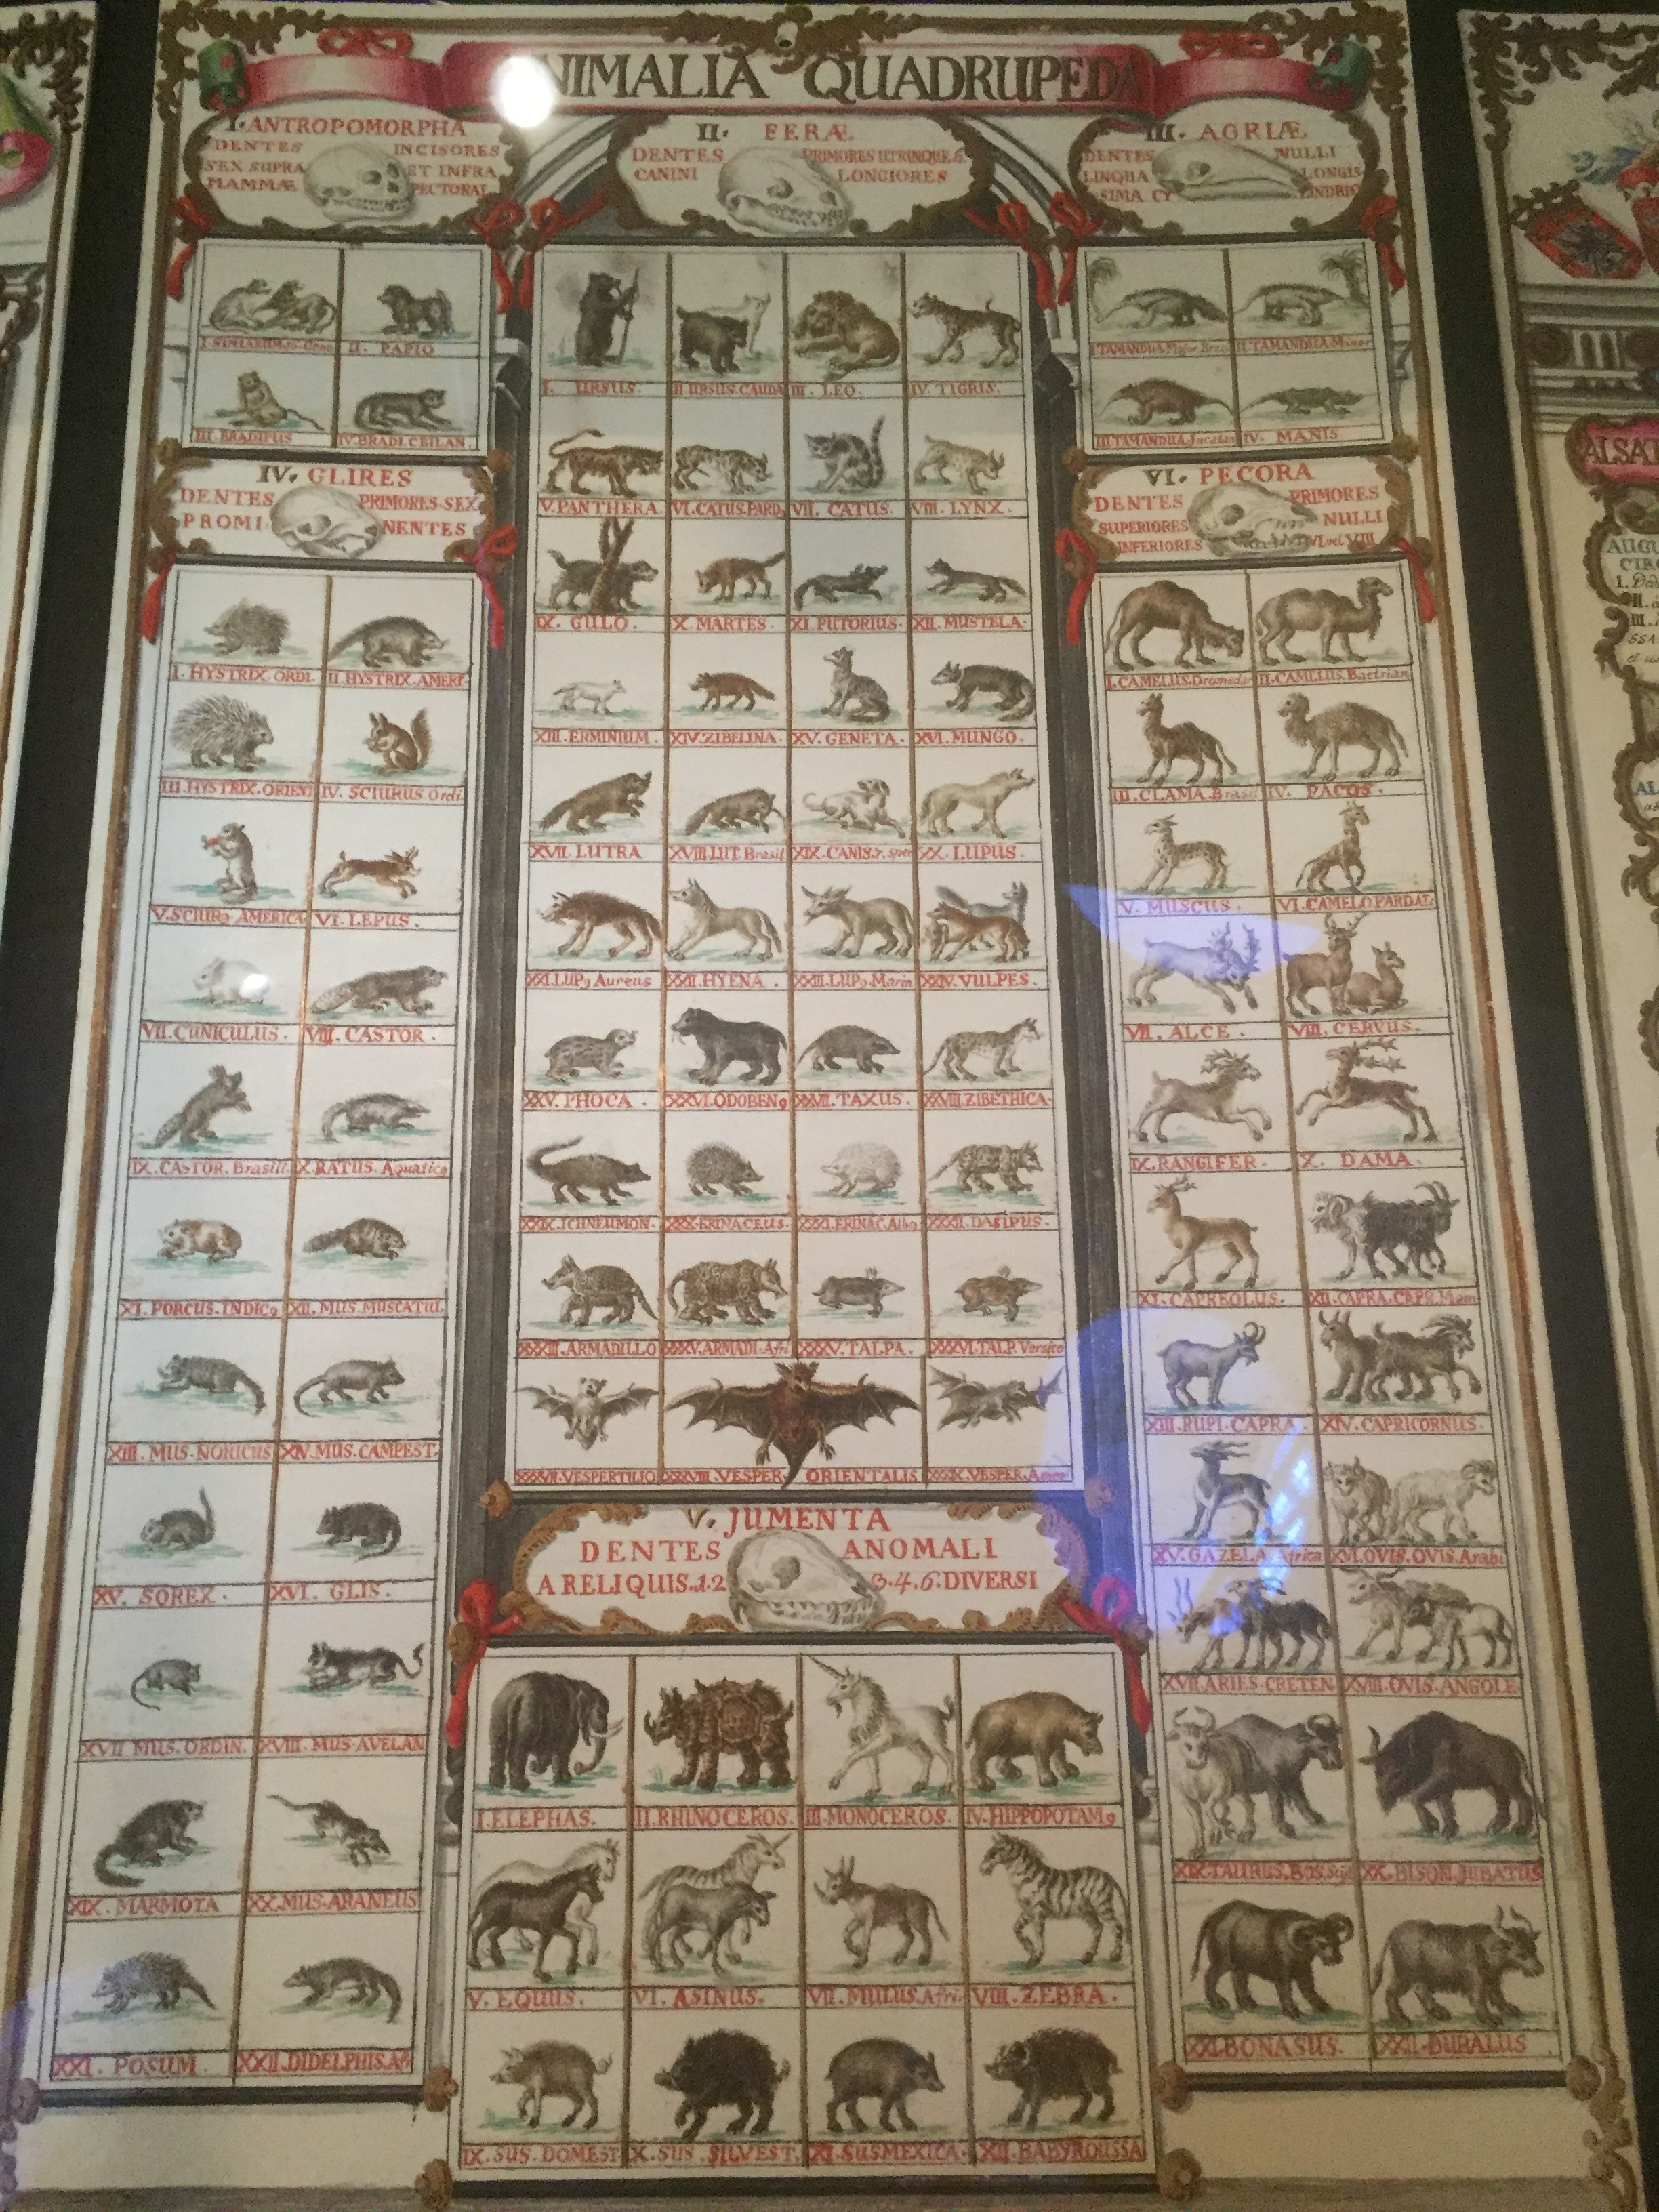 NIMALIA QUADRUPEDA
I. ANTROPOMORPHA
DENTES INCISORES
SEX SUPRA ET INFRA
MAMMÆ PECTORAL
II. FERÆ
DENTES PRIMORES UTRINQUE 6
CANINI LONGIORES
III. AGRIÆ
DENTES NULLI
LINGUA LONGIS
SIMA CY LINDRIC
II. PAPIO
III. BRADIPUS
IV. BRADI. CEILAN.
I. URSUS.
II URSUS. CAUDA
III. LEO.
IV. TIGRIS.
V. PANTHERA.
VI. CATUS. PARD.
VII. CATUS.
VIII. LYNX.
IX. GULO.
X. MARTES.
XI. PUTORIUS.
XII. MUSTELA.
XIII. ERMINIUM.
XIV. ZIBELINA.
XV. GENETA.
XVI. MUNGO.
XVII. LUTRA
XVIII. LUT. Brasil
XIX. CANIS. 7. spec
XX. LUPUS.
XXI. LUP9 Aureus
XXII. HYENA.
XXIII. LUP9 Marin
XXIV. VULPES.
XXV. PHOCA.
XXVI. ODOBEN9
XXVII. TAXUS.
XXVIII. ZIBETHICA.
XXIX. ICHNEUMON.
XXX. ERINACEUS.
XXXI. ERINAC. Alb9
XXXII. DASIPUS.
XXXIII. ARMADILLO
XXXXV. ARMADI. Afri
XXXV. TALPA.
XXXVI. TALP. Versico
XXXVII. VESPERTILIO
XXXVIII. VESPER. ORIENTALIS
XXXIX. VESPER. Amer
I. TAMANDUA. Major Bras
II. TAMANDUA. Minor
III. TAMANDUA. Jucatan
IV. MANIS
IV. GLIRES
DENTES PRIMORES. SEX
PROMI NENTES
I. HYSTRIX. ORDI.
II. HYSTRIX. AMERI.
III. HYSTRIX. ORIENT
IV. SCIURUS Ordi.
V. SCIUR9 AMERICA
VI. LEPUS.
VII. CUNICULUS.
VIII. CASTOR.
IX. CASTOR. Brasili.
X. RATUS. Aquatic9
XI. PORCUS. INDIC9
XII. MUS. MUSCATUL
XIII. MUS. NORICUS
XIV. MUS. CAMPEST.
XV. SOREX.
XVI. GLIS.
XVII MUS. ORDIN.
XVIII. MUS. AVELAN
XIX. MARMOTA
XX. MUS. ARANEUS
XXI. POSUM.
XXII. DIDELPHIS. Af
V. JUMENTA
DENTES ANOMALI
A RELIQUIS. 1. 2 3. 4. 6: DIVERSI
I. ELEPHAS.
II. RHINOCEROS.
III. MONOCEROS.
IV. HIPPOPOTAM9
V. EQUUS.
VI. ASINUS.
VII. MULUS. Afri
VIII. ZEBRA.
IX. SUS. DOMEST
X. SUS. SILVEST.
XI. SUS MEXICA.
XII. BABYROUSSA
VI. PECORA
DENTES PRIMORES
SUPERIORES NULLI
INFERIORES VI vel VIII
I. CAMELUS. Dromedar
II. CAMELUS. Bactrian
III. CLAMA. Brasil
IV. PACOS.
V. MUSCUS.
VI. CAMELO. PARDAL:
VII. ALCE.
VIII. CERVUS.
IX. RANGIFER.
X. DAMA.
XI. CAPREOLUS.
XII. CAPRA. CAPR. Mam
XIII. RUPI. CAPRA.
XIV. CAPRICORNUS.
XV. GAZELA Africa
XVI. OVIS. OVIS. Arabi
XVII. ARIES. CRETEN
XVIII. OVIS. ANGOLE.
XIX. TAURUS. BOS.
XX. BISON. JUBATUS
XXI. BONASUS.
XXII. BUBALUS
ALSA
AUGU